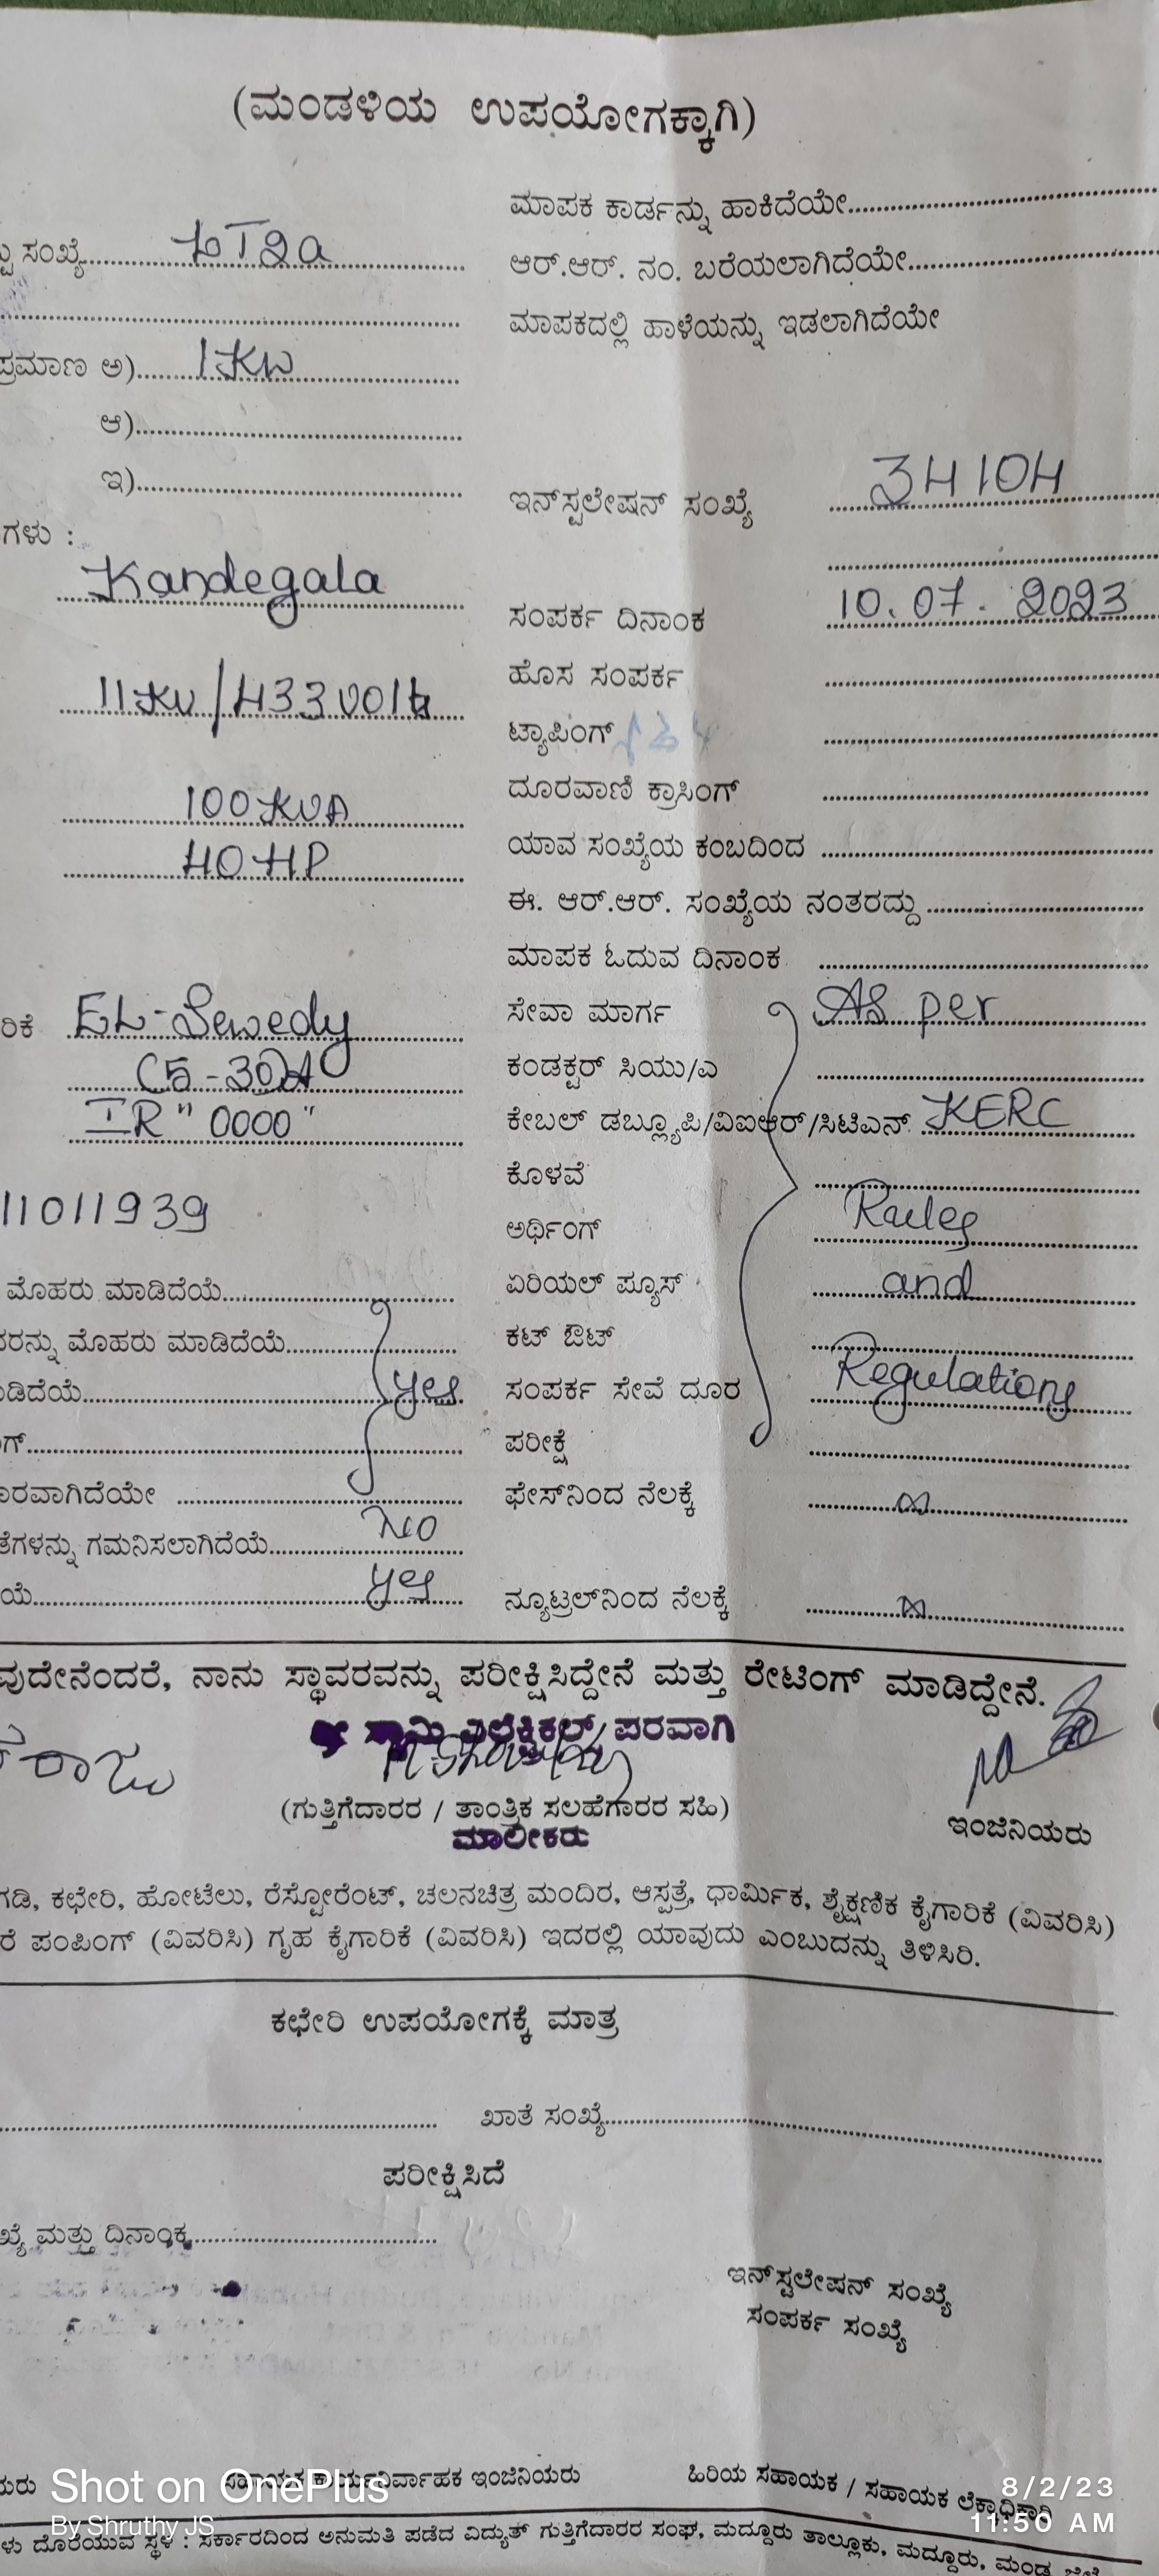 (ಮಂಡಳಿಯ ಉಪಯೋಗಕ್ಕಾಗಿ)
ಮಾಪಕ ಕಾರ್ಡನ್ನು ಹಾಕಿದೆಯೇ
ಸಂಖ್ಯೆ LT2a
ಆರ್.ಆರ್. ನಂ. ಬರೆಯಲಾಗಿದೆಯೇ
ಮಾಪಕದಲ್ಲಿ ಹಾಳೆಯನ್ನು ಇಡಲಾಗಿದೆಯೇ
ಪ್ರಮಾಣ ಅ) 1KW
ಆ)
ಇ)
ಇನ್‌ಸ್ಟಲೇಷನ್ ಸಂಖ್ಯೆ 34104
ಗಳು :
Kandegala
ಸಂಪರ್ಕ ದಿನಾಂಕ 10.07.2023
ಹೊಸ ಸಂಪರ್ಕ
11KV/433 Volts
ಟ್ಯಾಪಿಂಗ್
ದೂರವಾಣಿ ಕ್ರಾಸಿಂಗ್
100KVA
ಯಾವ ಸಂಖ್ಯೆಯ ಕಂಬದಿಂದ
40HP
ಈ. ಆರ್.ಆರ್. ಸಂಖ್ಯೆಯ ನಂತರದ್ದು
ಮಾಪಕ ಓದುವ ದಿನಾಂಕ
ರಿಕೆ EL-Sewedy
ಸೇವಾ ಮಾರ್ಗ As per
(5-30)A
ಕಂಡಕ್ಟರ್ ಸಿಯು/ಎ
IR "0000"
ಕೇಬಲ್ ಡಬ್ಲ್ಯೂಪಿ/ವಿಐಆರ್/ಸಿಟಿಎನ್ KERC
ಕೊಳವೆ
11011939
ಅರ್ಥಿಂಗ್ Rules
ಮೊಹರು ಮಾಡಿದೆಯೆ
ಏರಿಯಲ್ ಪ್ಯೂಸ್ and
ರನ್ನು ಮೊಹರು ಮಾಡಿದೆಯೆ
ಕಟ್ ಔಟ್
ಡಿದೆಯೆ Yes
ಸಂಪರ್ಕ ಸೇವೆ ದೂರ Regulations
ಗ್
ಪರೀಕ್ಷೆ
ಾರವಾಗಿದೆಯೇ
ಫೇಸ್‌ನಿಂದ ನೆಲಕ್ಕೆ ∞
ತೆಗಳನ್ನು ಗಮನಿಸಲಾಗಿದೆಯೆ NO
ಯೆ Yes
ನ್ಯೂಟ್ರಲ್‌ನಿಂದ ನೆಲಕ್ಕೆ ∞
ವುದೇನೆಂದರೆ, ನಾನು ಸ್ಥಾವರವನ್ನು ಪರೀಕ್ಷಿಸಿದ್ದೇನೆ ಮತ್ತು ರೇಟಿಂಗ್ ಮಾಡಿದ್ದೇನೆ.
ಸ್ವಾಮಿ ಎಲೆಕ್ಟ್ರಿಕಲ್ಸ್ ಪರವಾಗಿ
(ಗುತ್ತಿಗೆದಾರರ / ತಾಂತ್ರಿಕ ಸಲಹೆಗಾರರ ಸಹಿ)
ಮಾಲೀಕರು
ಇಂಜಿನಿಯರು
ಗಡಿ, ಕಛೇರಿ, ಹೋಟೆಲು, ರೆಸ್ಟೋರೆಂಟ್, ಚಲನಚಿತ್ರ ಮಂದಿರ, ಆಸ್ಪತ್ರೆ, ಧಾರ್ಮಿಕ, ಶೈಕ್ಷಣಿಕ ಕೈಗಾರಿಕೆ (ವಿವರಿಸಿ)
ರೆ ಪಂಪಿಂಗ್ (ವಿವರಿಸಿ) ಗೃಹ ಕೈಗಾರಿಕೆ (ವಿವರಿಸಿ) ಇದರಲ್ಲಿ ಯಾವುದು ಎಂಬುದನ್ನು ತಿಳಿಸಿರಿ.
ಕಛೇರಿ ಉಪಯೋಗಕ್ಕೆ ಮಾತ್ರ
ಖಾತೆ ಸಂಖ್ಯೆ
ಪರೀಕ್ಷಿಸಿದೆ
ಖ್ಯೆ ಮತ್ತು ದಿನಾಂಕ
ಇನ್‌ಸ್ಟಲೇಷನ್ ಸಂಖ್ಯೆ
ಸಂಪರ್ಕ ಸಂಖ್ಯೆ
ಯರು ಸಹಾಯಕ ಕಾರ್ಯನಿರ್ವಾಹಕ ಇಂಜಿನಿಯರು ಹಿರಿಯ ಸಹಾಯಕ / ಸಹಾಯಕ ಲೆಕ್ಕಾಧಿಕಾರಿ
Shot on OnePlus
By Shruthy JS
8/2/23
11:50 AM
ಳು ದೊರೆಯುವ ಸ್ಥಳ : ಸರ್ಕಾರದಿಂದ ಅನುಮತಿ ಪಡೆದ ವಿದ್ಯುತ್ ಗುತ್ತಿಗೆದಾರರ ಸಂಘ, ಮದ್ದೂರು ತಾಲ್ಲೂಕು, ಮದ್ದೂರು, ಮಂಡ್ಯ ಜಿಲ್ಲೆ